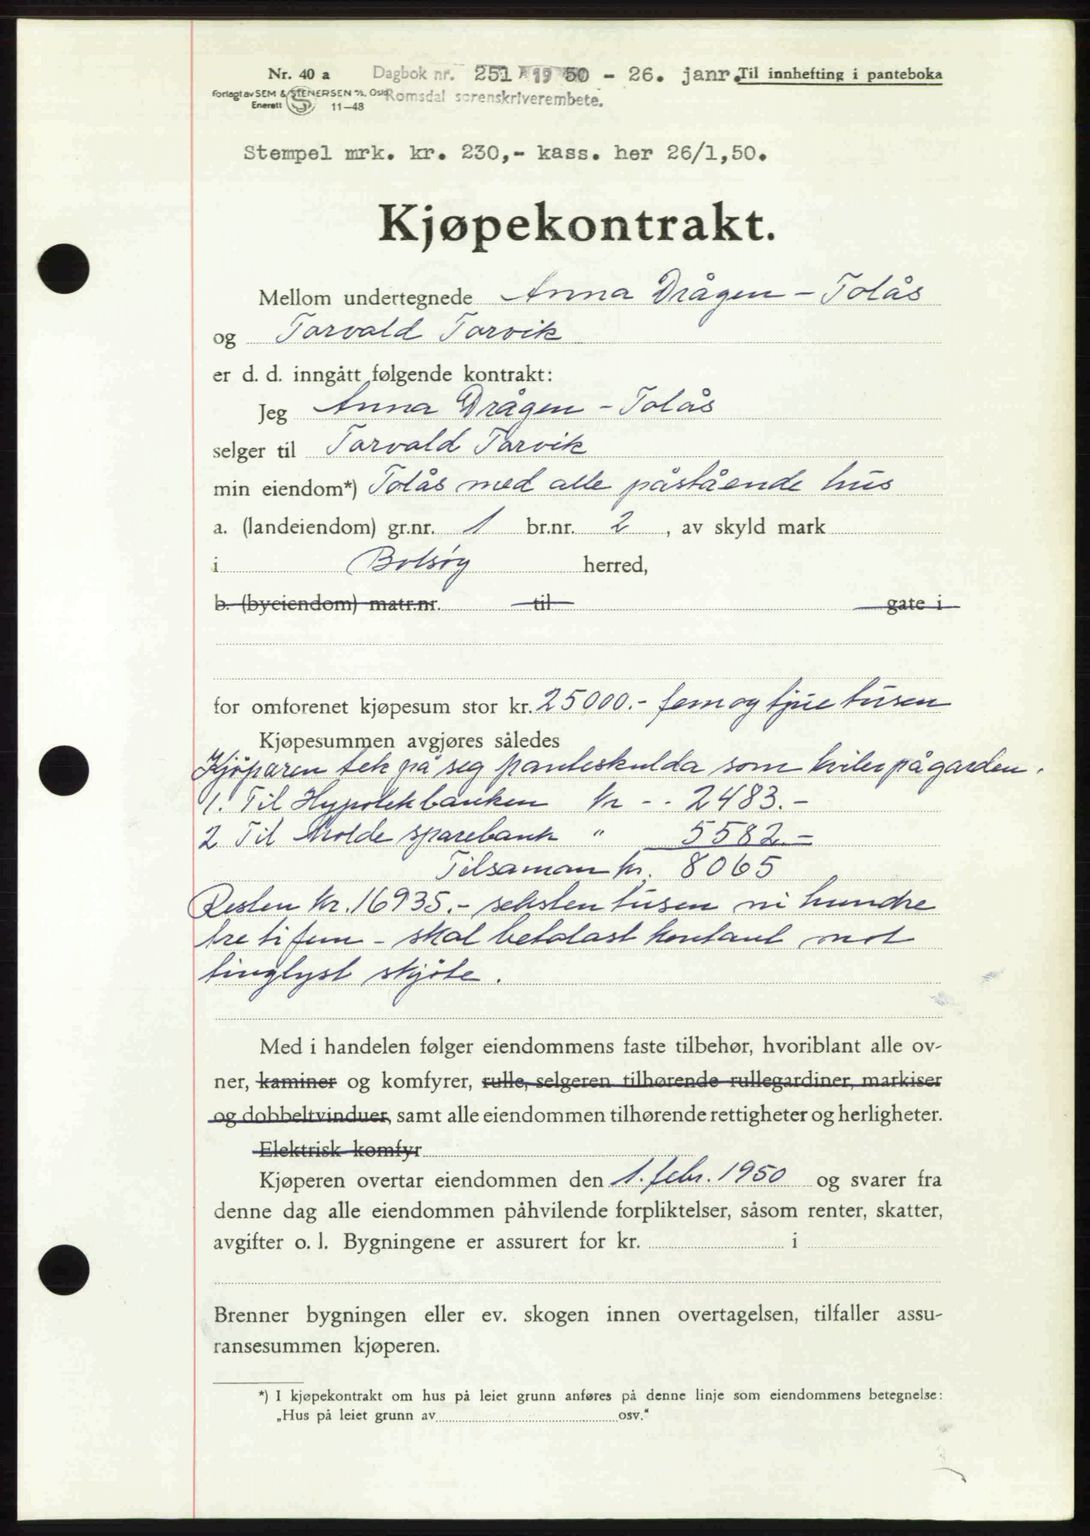 Nr. 40 a Dagbok nr. 251 1950 - 26. janr. Til innhefting i panteboka
Forlagt av SEM & STENERSEN A/S, Oslo Romsdal sorenskriverembete.
Enerett S 11-48
Stempel mrk. kr. 230,- kass. her 26/1,50.
Kjøpekontrakt.
Mellom undertegnede Anna Drågen - Tolås
og Torvald Torvik
er d. d. inngått følgende kontrakt:
Jeg Anna Drågen - Tolås
selger til Torvald Torvik
min eiendom*) Tolås med alle påstående hus
a. (landeiendom) gr.nr. 1 br.nr. 2, av skyld mark
i Bolsøy herred,
b. (byeiendom) matr.nr. til gate i
for omforenet kjøpesum stor kr. 25000.- fem og tjue tusen
Kjøpesummen avgjøres således
Kjöparen tek på seg panteskulda som kviler på garden.
1. Til Hypotekbanken kr - . 2483.-
2 Til Molde sparebank " 5582.-
Tilsaman kr. 8065
Resten kr. 16935.- seksten tusen ni hundre
tre ti fem - skal betalast kontant mot
tinglyst skjöte.
Med i handelen følger eiendommens faste tilbehør, hvoriblant alle ov-
ner, kaminer og komfyrer, rulle, selgeren tilhørende rullegardiner, markiser
og dobbeltvinduer, samt alle eiendommen tilhørende rettigheter og herligheter.
Elektrisk komfyr
Kjøperen overtar eiendommen den 1. febr. 1950 og svarer fra
denne dag alle eiendommen påhvilende forpliktelser, såsom renter, skatter,
avgifter o. l. Bygningene er assurert for kr. i
Brenner bygningen eller ev. skogen innen overtagelsen, tilfaller assu-
ransesummen kjøperen.
*) I kjøpekontrakt om hus på leiet grunn anføres på denne linje som eiendommens betegnelse:
„Hus på leiet grunn av osv."